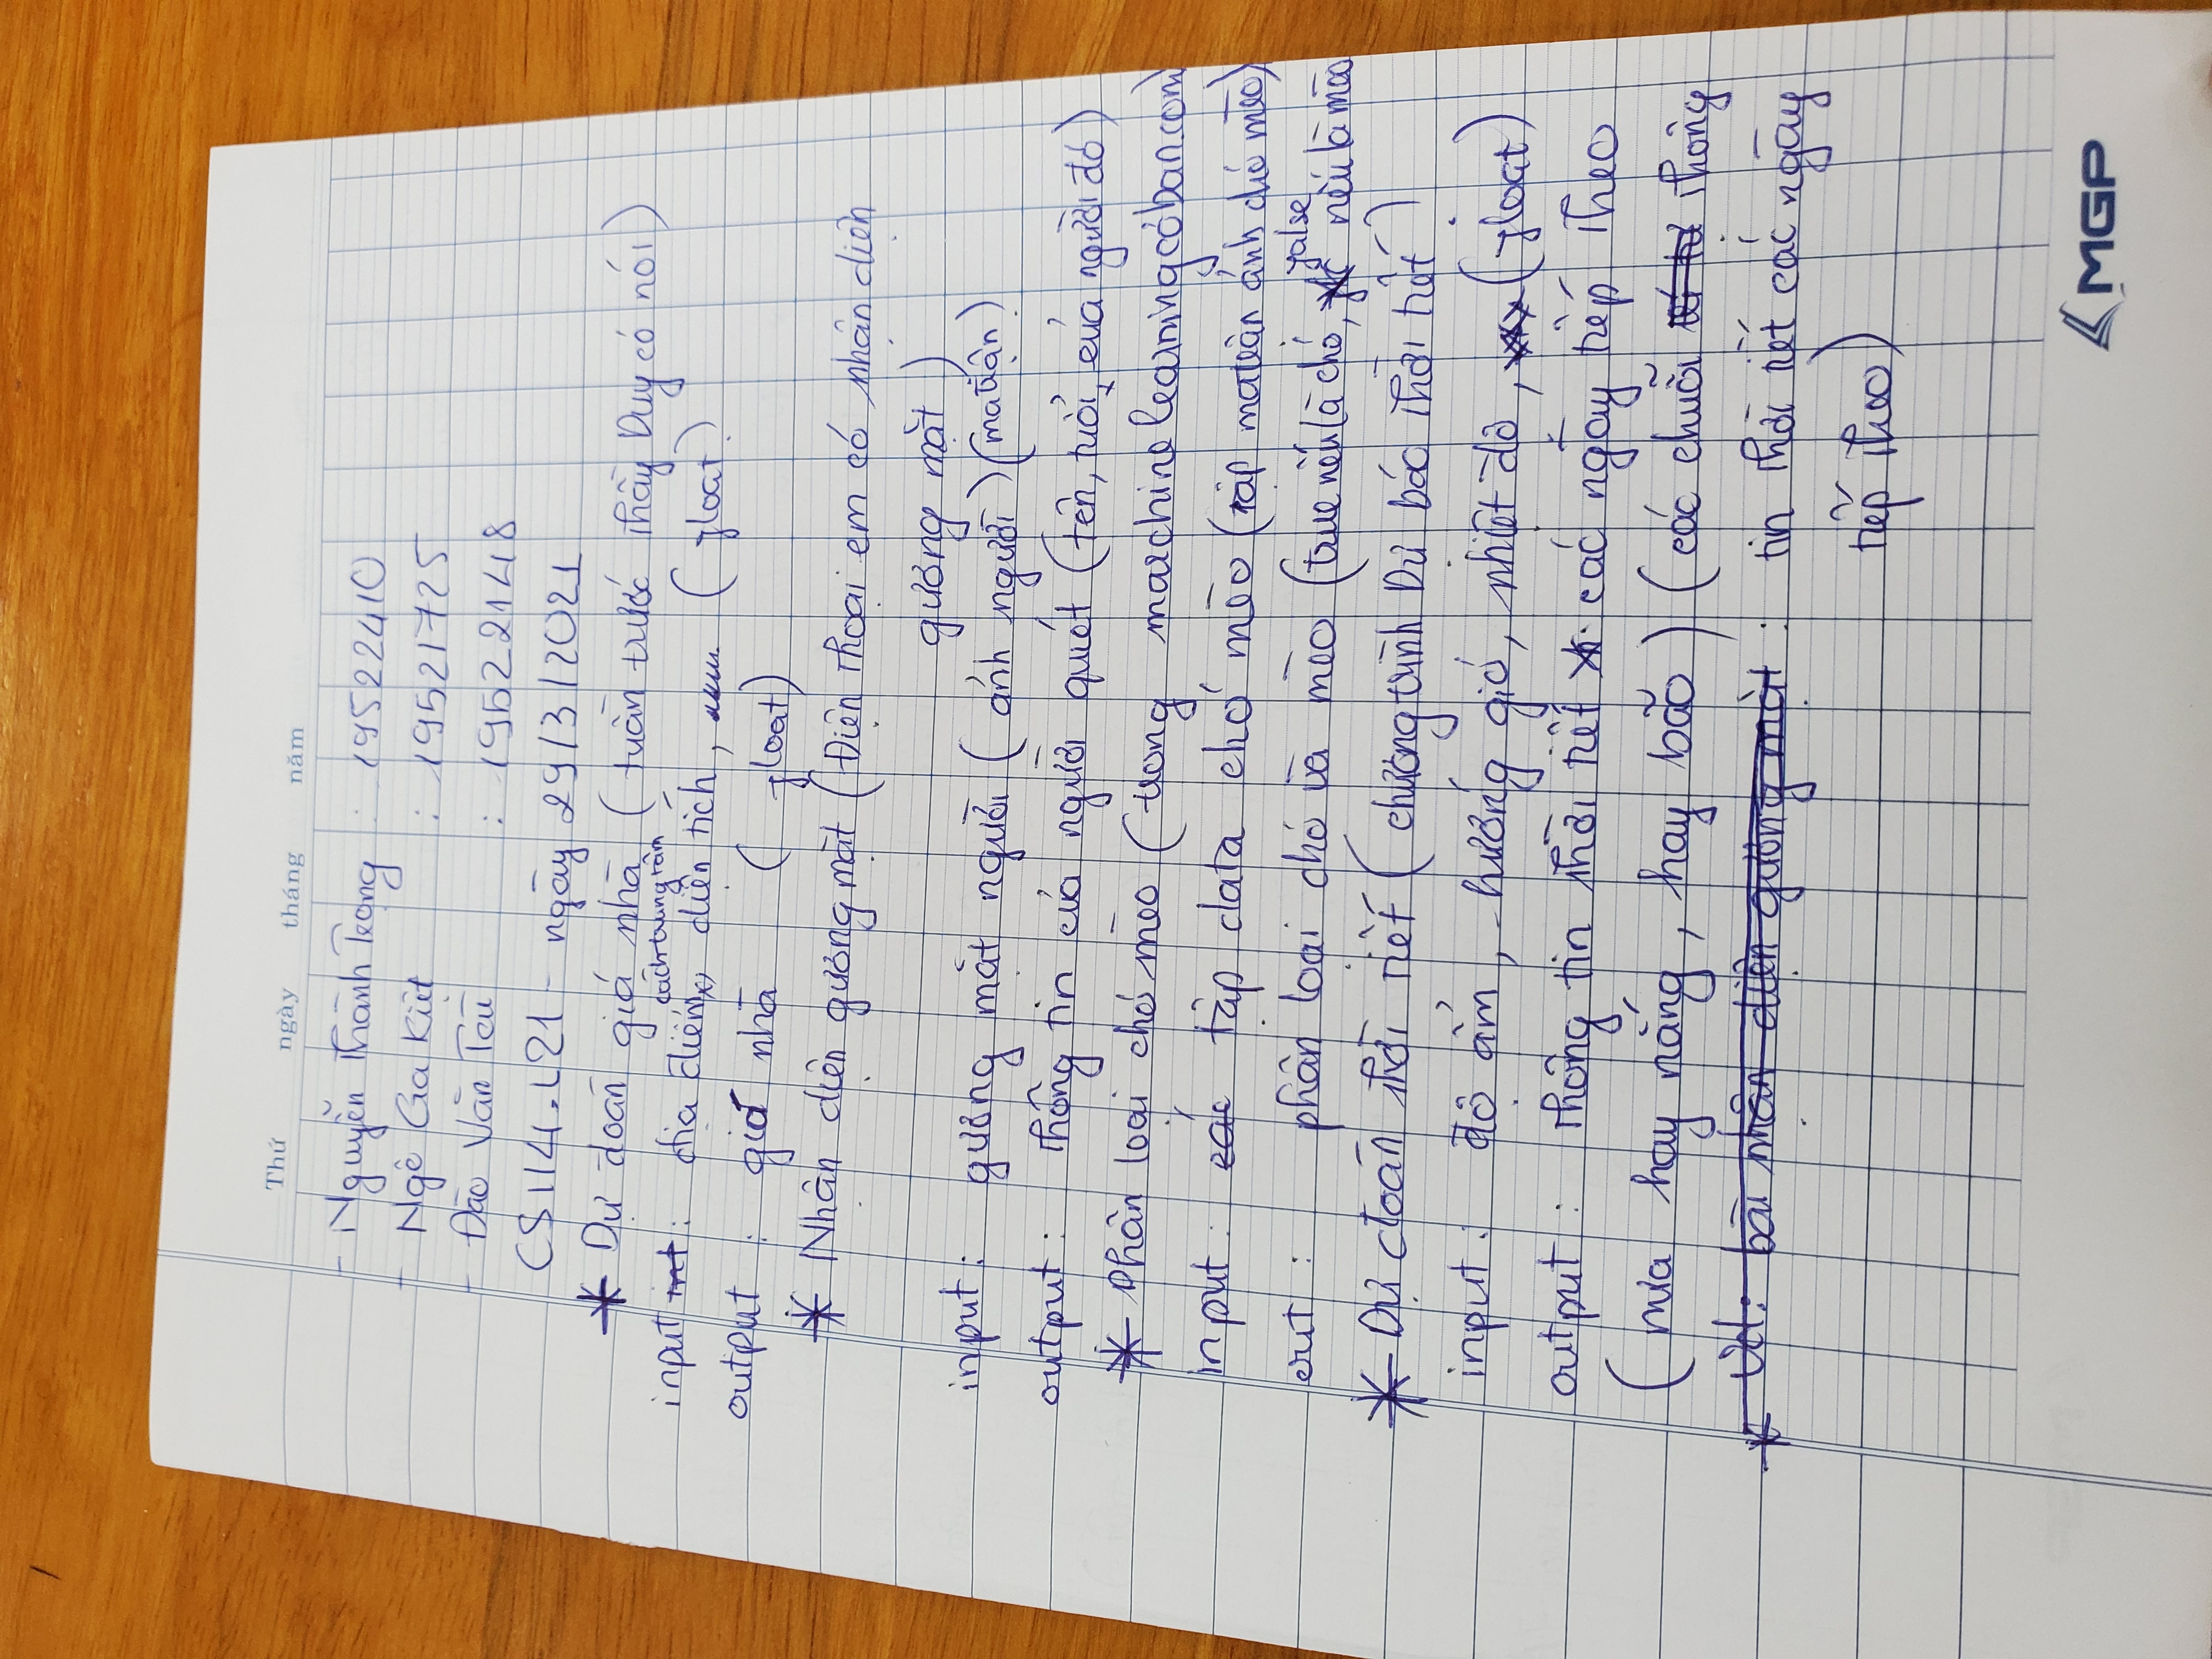 Thứ ngày tháng năm
- Nguyễn Thành Trọng : 19522410
- Ngô Gia Kiệt : 19521725
- Đào Văn Tài : 19522148
CS114.L21 - ngày 29/3/2021
* Dự đoán giá nhà (tuần trước thầy Duy có nói)
cách trung tâm
input : địa điểm, diện tích, (float)
output : giá nhà (float)
* Nhận diện gương mặt (Điện thoại em có nhận diện
gương mặt)
input : gương mặt người (ảnh người) (ma trận)
output : thông tin của người quét (tên, tuổi, của người đó)
* phân loại chó mèo (trong marchinelearningcơban.com)
input : tập data chó mèo (tập ma trận ảnh chó mèo)
false
out : phân loại chó và mèo (true nếu là chó, nếu là mèo
* Dự đoán thời tiết (chương trình Dự báo thời tiết)
input : độ ẩm, hướng gió, nhiệt độ, (float)
output : thông tin thời tiết các ngày tiếp theo
(mưa hay nắng, hay bão) (các chuỗi thông
* Vd: bài nhận diện gương mặt : tin thời tiết các ngày
tiếp theo)
MGP